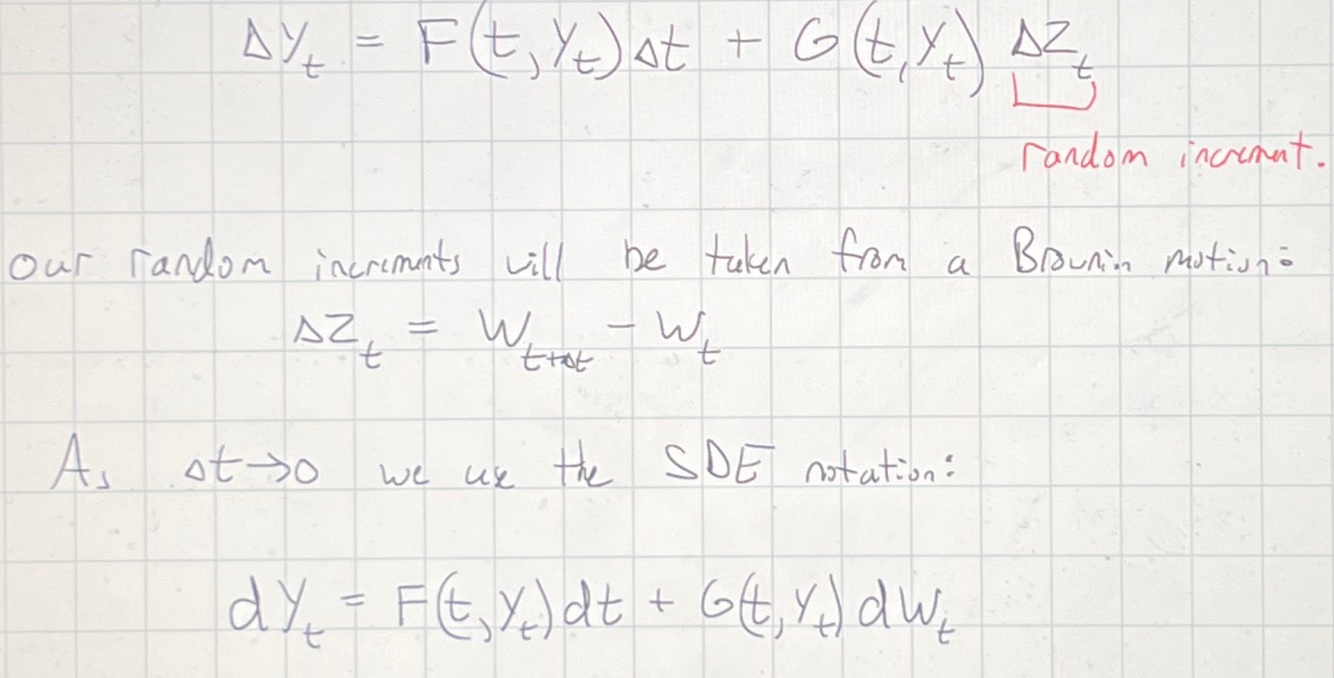 ΔY_t = F(t, Y_t)Δt + G(t, Y_t) ΔZ_t
random increment.
our random increments will be taken from a Brownin motion:
ΔZ_t = W_{t+Δt} - W_t
As Δt→0 we use the SDE notation:
dY_t = F(t, Y_t)dt + G(t, Y_t)dW_t